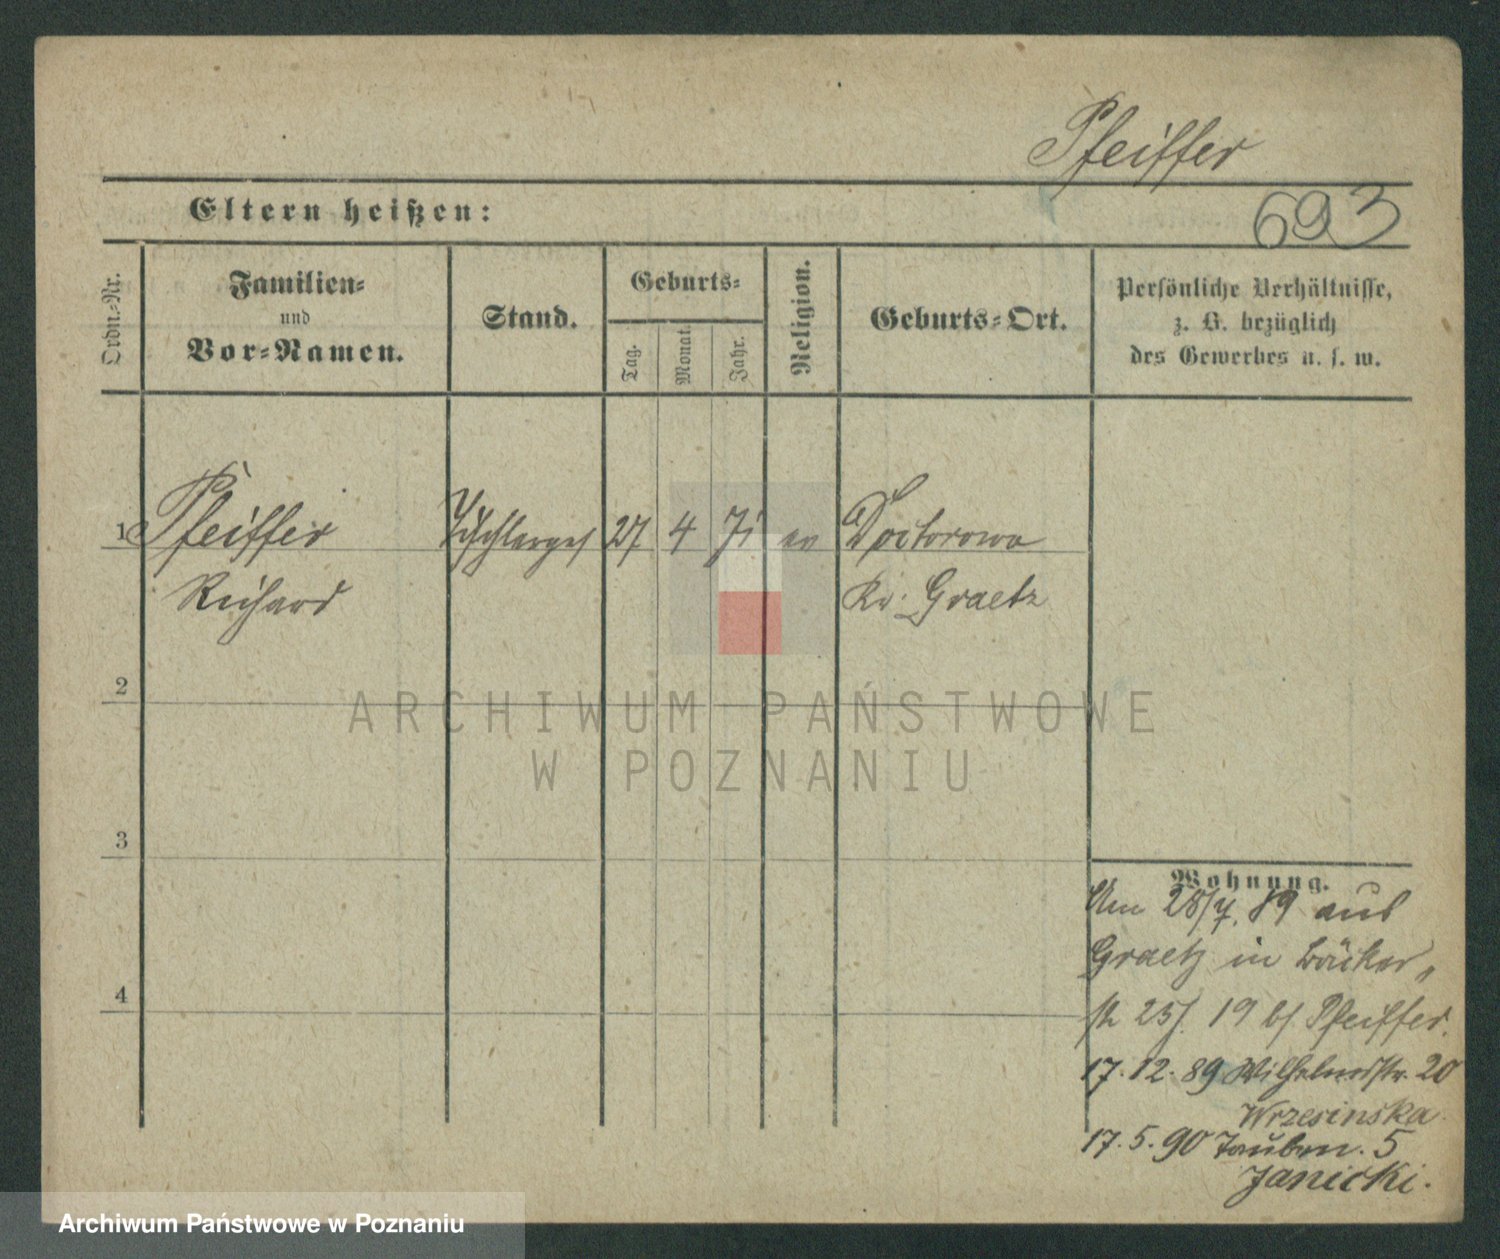 Pfeiffer
Eltern heißen:
693
Ordn.-Nr.
Familien-
und
Vor-Namen.
Stand.
Geburts-
Tag.
Monat.
Jahr.
Religion.
Geburts-Ort.
Persönliche Verhältnisse,
z. B. bezüglich
des Gewerbes u. s. w.
1 Pfeiffer Tischlerges 27 4 71 ev Doctorowo
Richard Kr. Graetz
2
ARCHIWUM PAŃSTWOWE
W POZNANIU
3
4
Wohnung.
Am 28/7. 89 aus
Graetz in Bäcker„
st 19 b/ Pfeiffer.
17.12.89 Wilhelmstr. 20
Wrzesinska
17.5.90 Tauben. 5
Janicki.
Archiwum Państwowe w Poznaniu